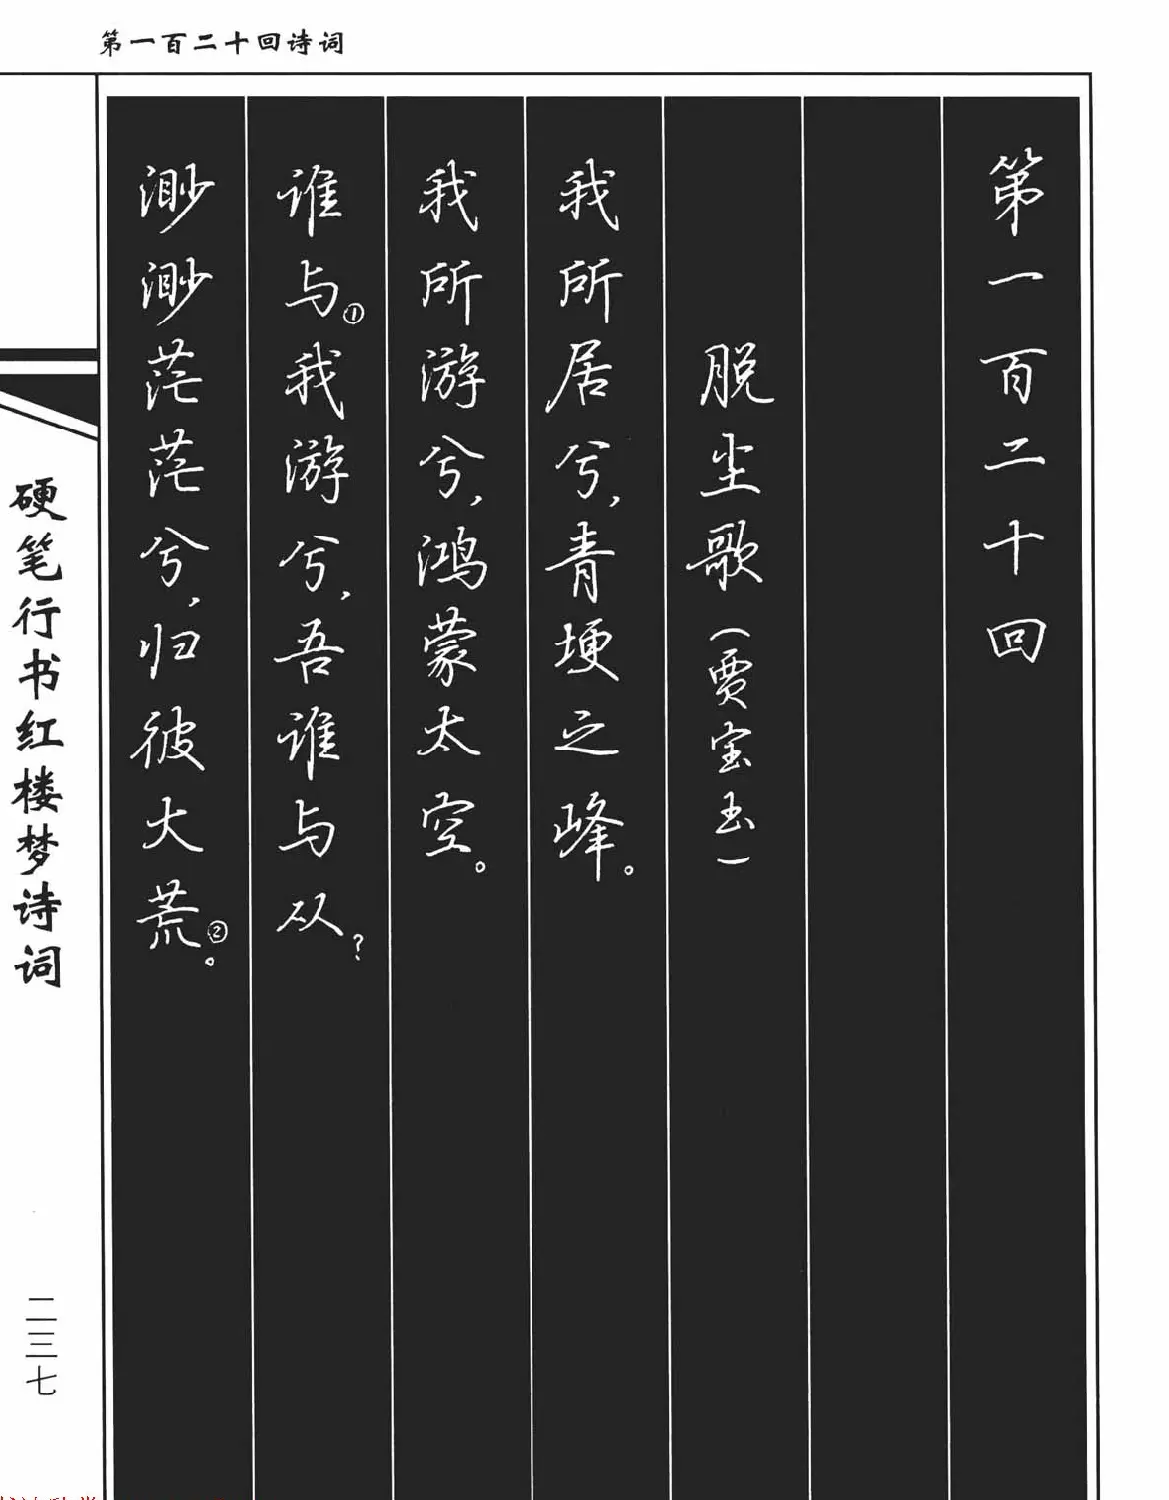 第一百二十回诗词
第一百二十回
脱尘歌（贾宝玉）
我所居兮，青埂之峰。
我所游兮，鸿蒙太空。
谁与①我游兮，吾谁与从？
渺渺茫茫兮，归彼大荒②。
硬笔行书红楼梦诗词
二三七